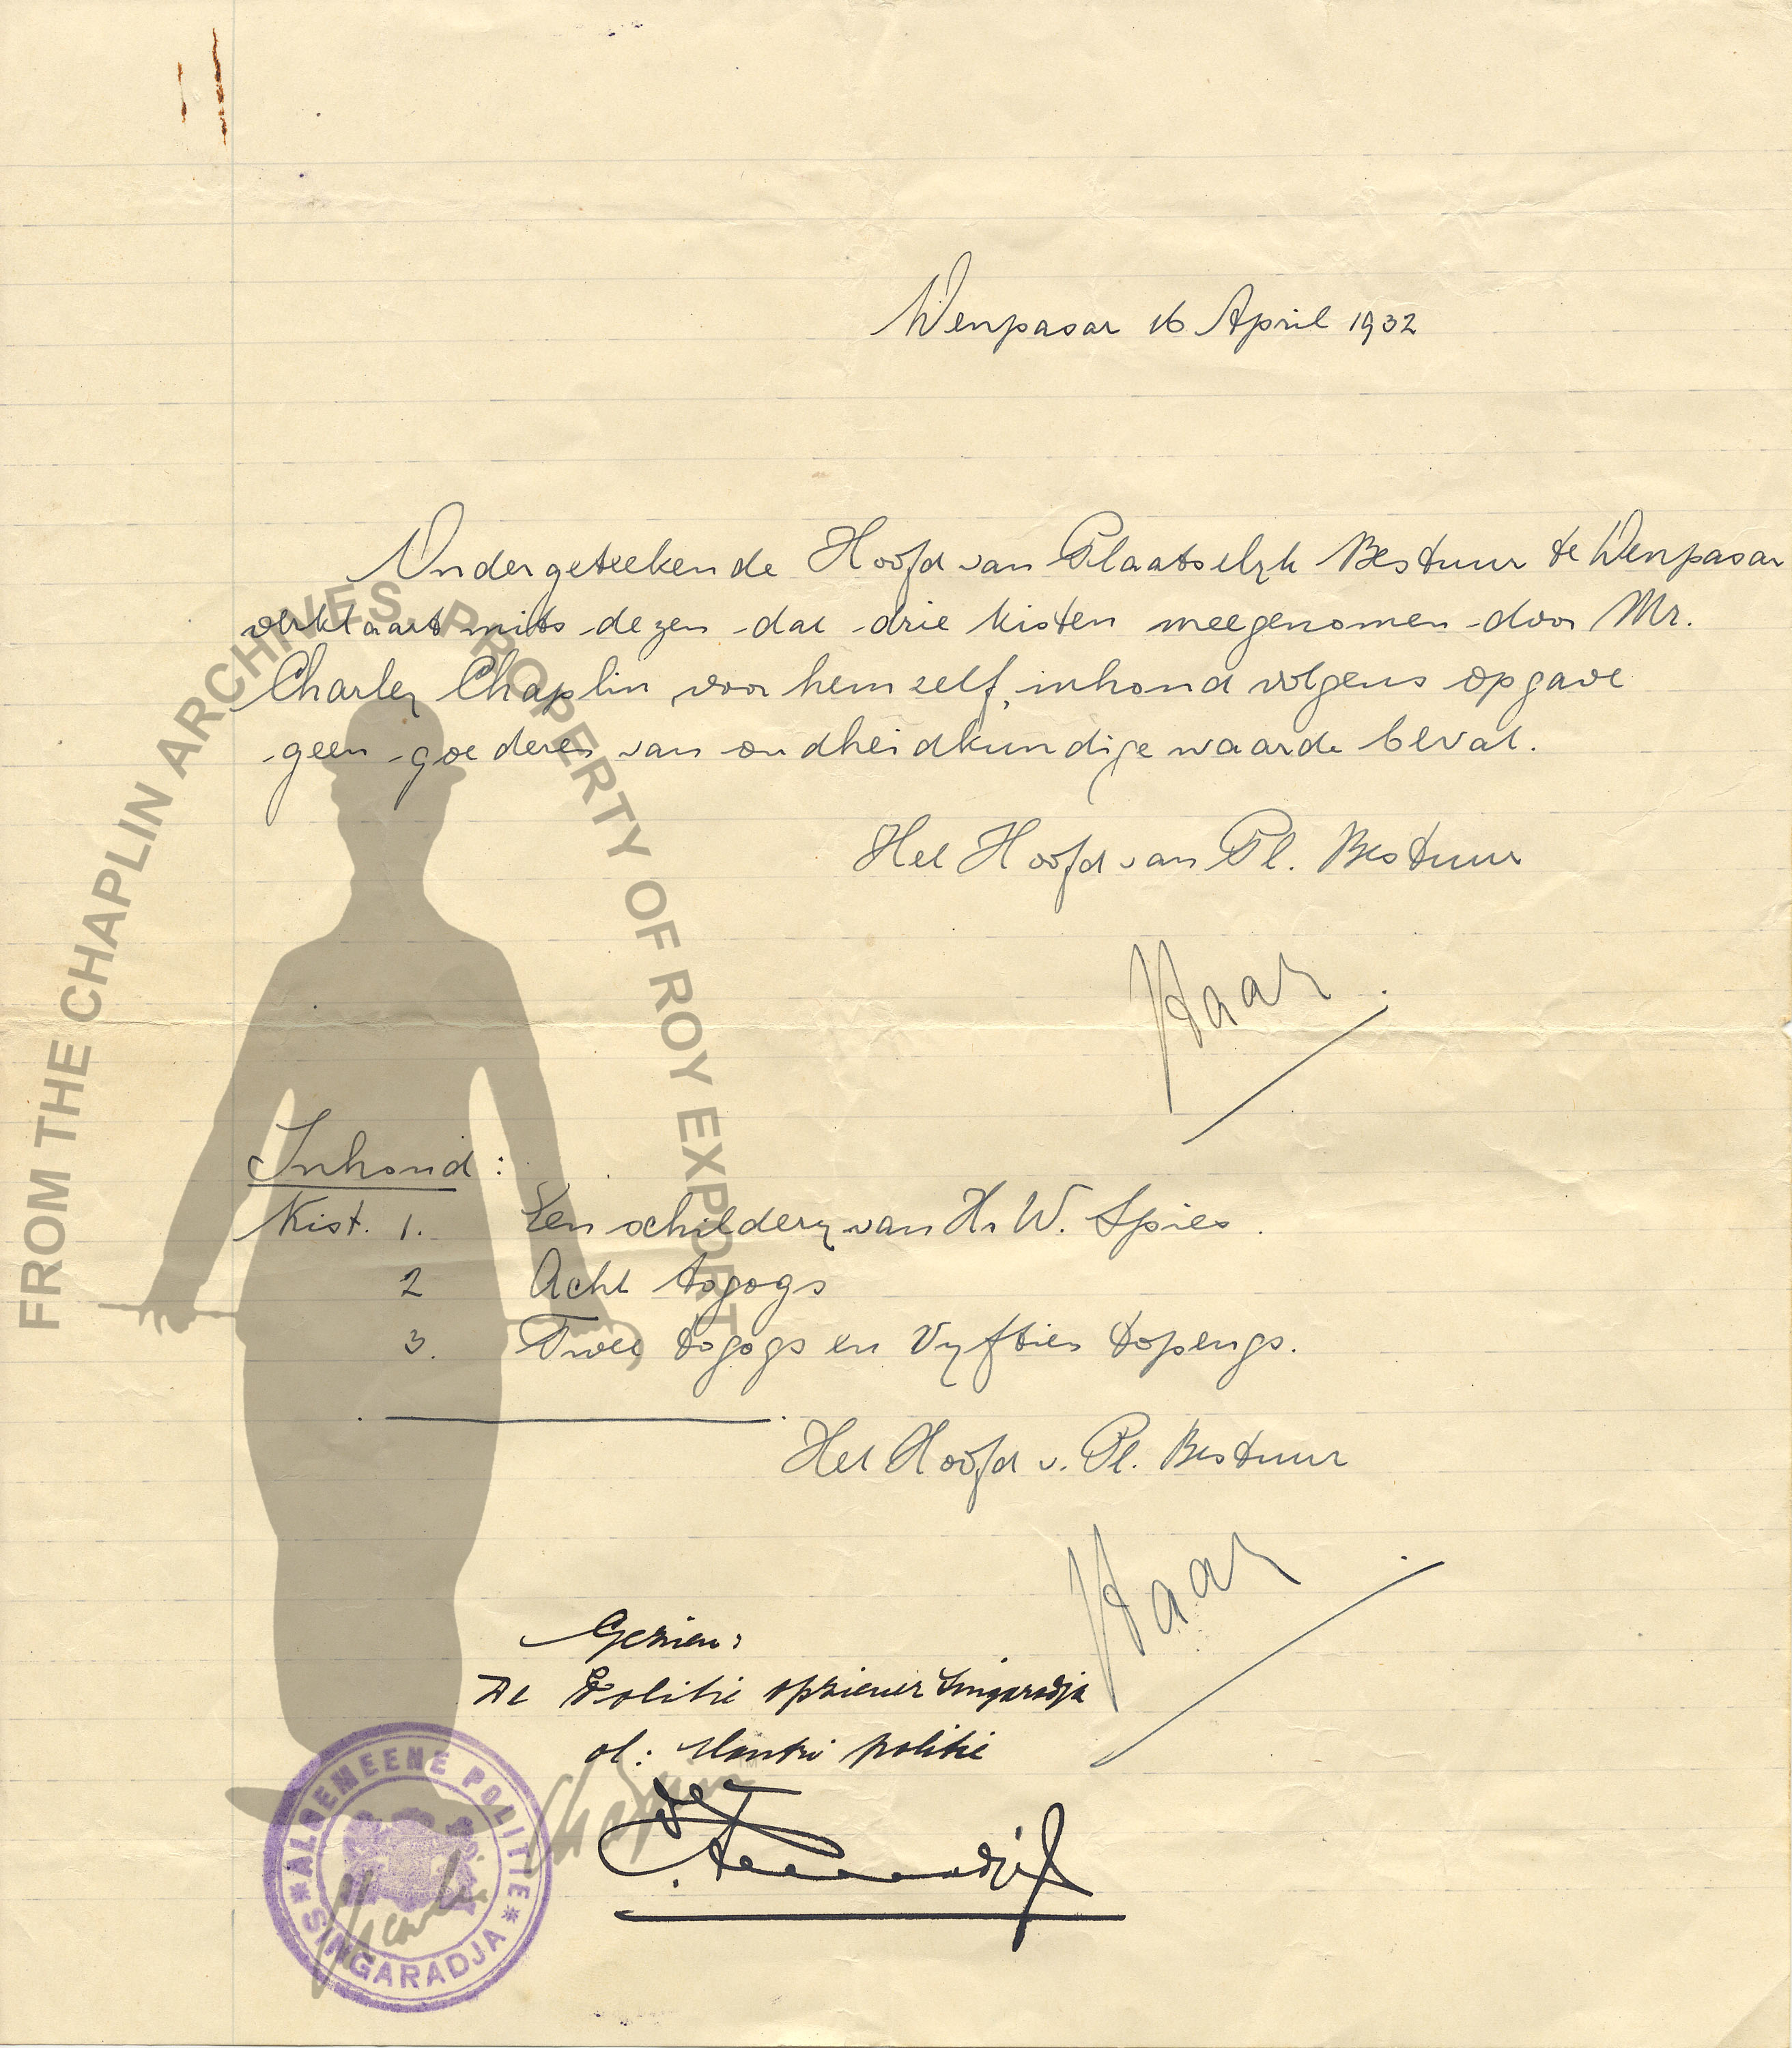 Denpasar 16 April 1932
Ondergeteekende Hoofd van Plaatselijk Bestuur te Denpasar
verklaart mits dezen dat drie kisten meegenomen door Mr.
Charley Chaplin voor hem zelf, inhoud volgens opgave
geen goederen van oudheidkundige waarde bevat.
Het Hoofd van Pl. Bestuur
Haar
Inhoud:
Kist. 1. Een schildery van Hr W. Spies.
2 Acht togogs
3. Twee togogs en Vyftien topengs.
Het Hoofd v. Pl. Bestuur
Haar
Gezien:
De Politie opziener Singaradja
Mantri politie
ALGEMEENE POLITIE
* SINGARADJA *
FROM THE CHAPLIN ARCHIVES. PROPERTY OF ROY EXPORT
Charlie Chaplin TM